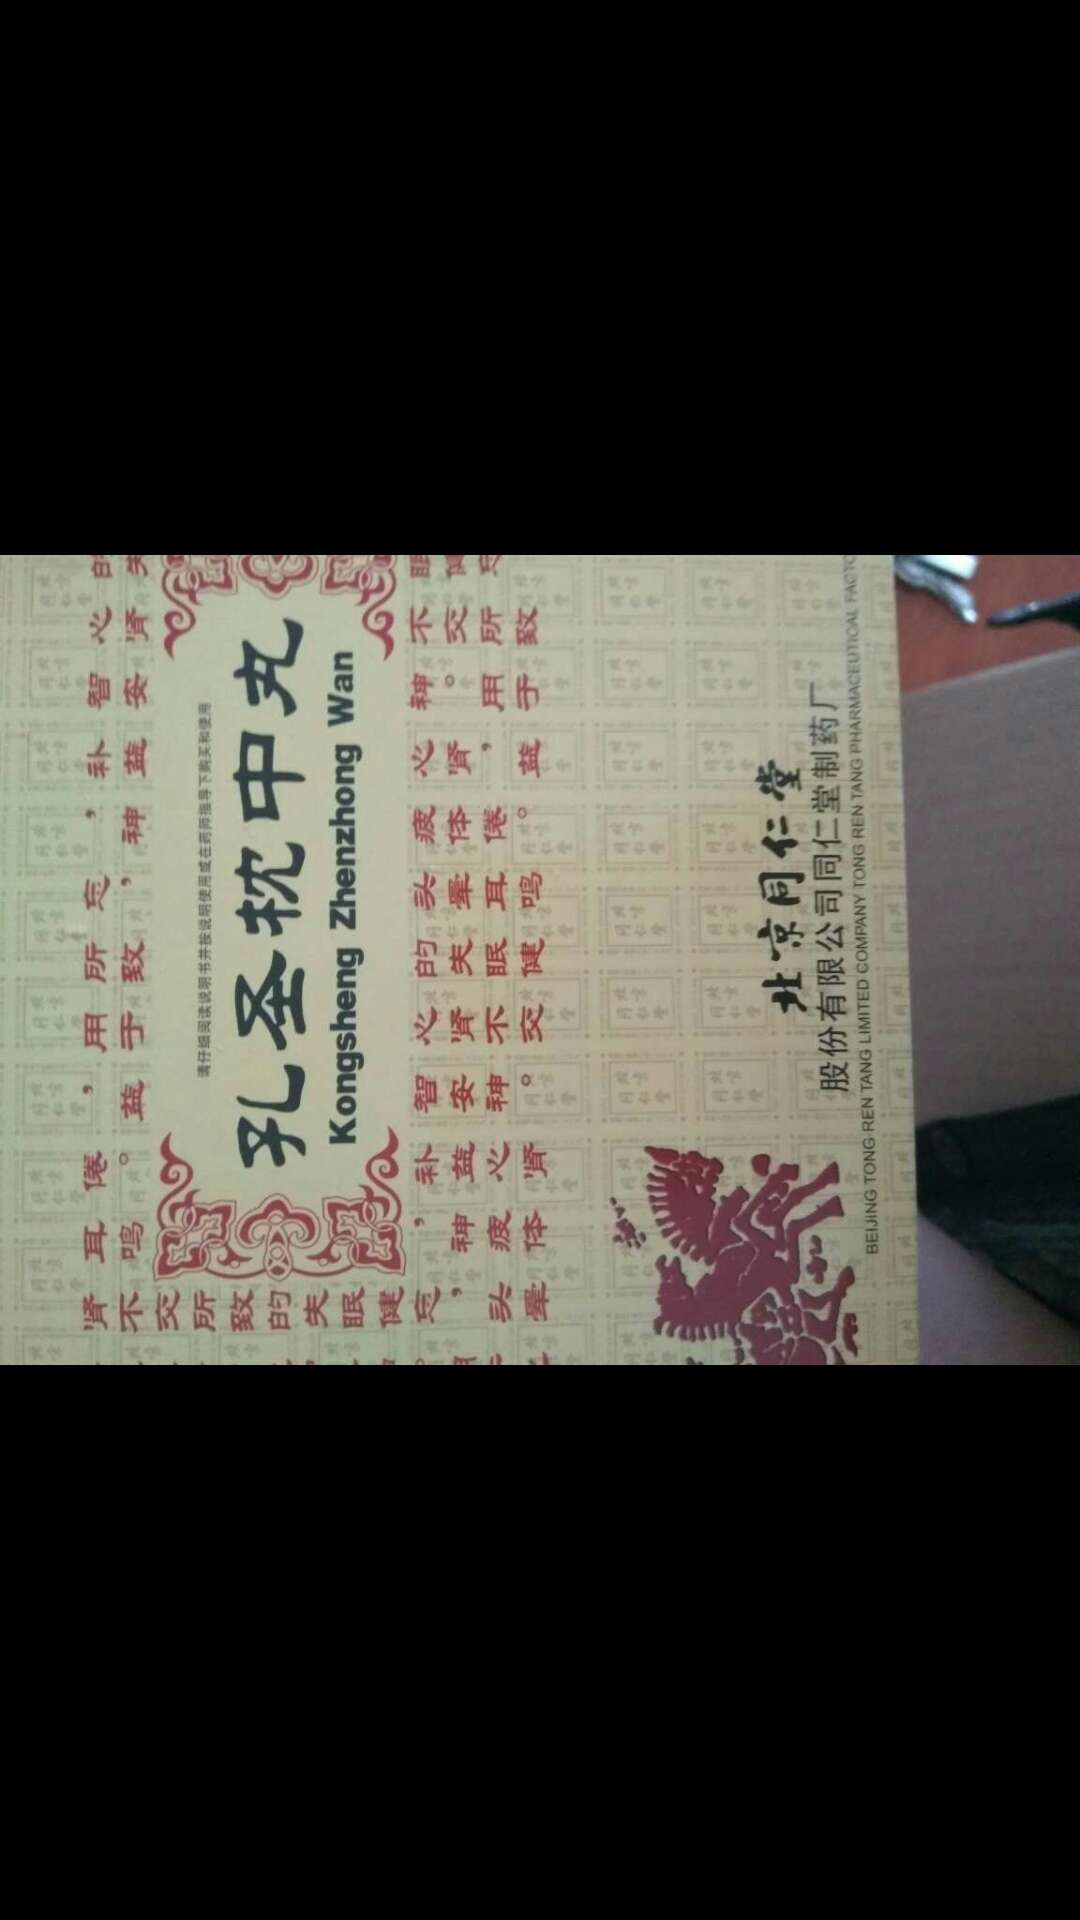 请仔细阅读说明书并按说明使用或在药师指导下购买和使用
孔圣枕中丸
Kongsheng Zhenzhong Wan
肾不交所致的失眠健忘，头晕
耳鸣，神疲体
倦。补益心肾
，益智安神。
用于心肾不交
所致的失眠健
忘，头晕耳鸣
，神疲体倦。
补益心肾，益
智安神。用于
心肾不交所致
的失眠健忘
北京同仁堂
股份有限公司同仁堂制药厂
BEIJING TONG REN TANG LIMITED COMPANY TONG REN TANG PHARMACEUTICAL FACTO